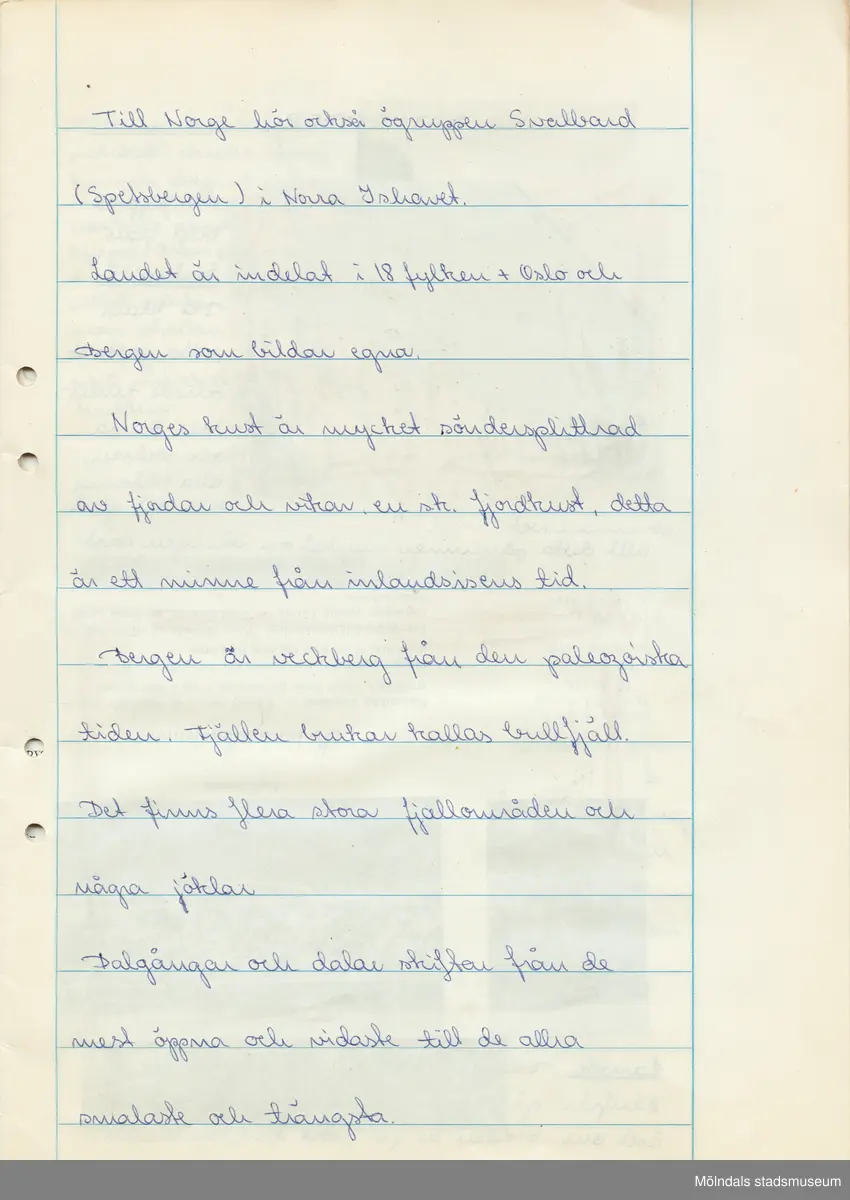 Till Norge hör också ögruppen Svalbard
(Spetsbergen) i Norra Ishavet.
Landet är indelat i 18 fylken + Oslo och
Bergen som bildar egna.
Norges kust är mycket söndersplittrad
av fjordar och vikar, en sk. fjordkust, detta
är ett minne från inlandsisens tid.
Bergen är veckberg från den paleozóiska
tiden. Fjällen brukar kallas bullfjäll.
Det finns flera stora fjällområden och
några jöklar
Dalgångar och dalar skiftar från de
mest öppna och vidaste till de allra
smalaste och trängsta.
Mölndals stadsmuseum